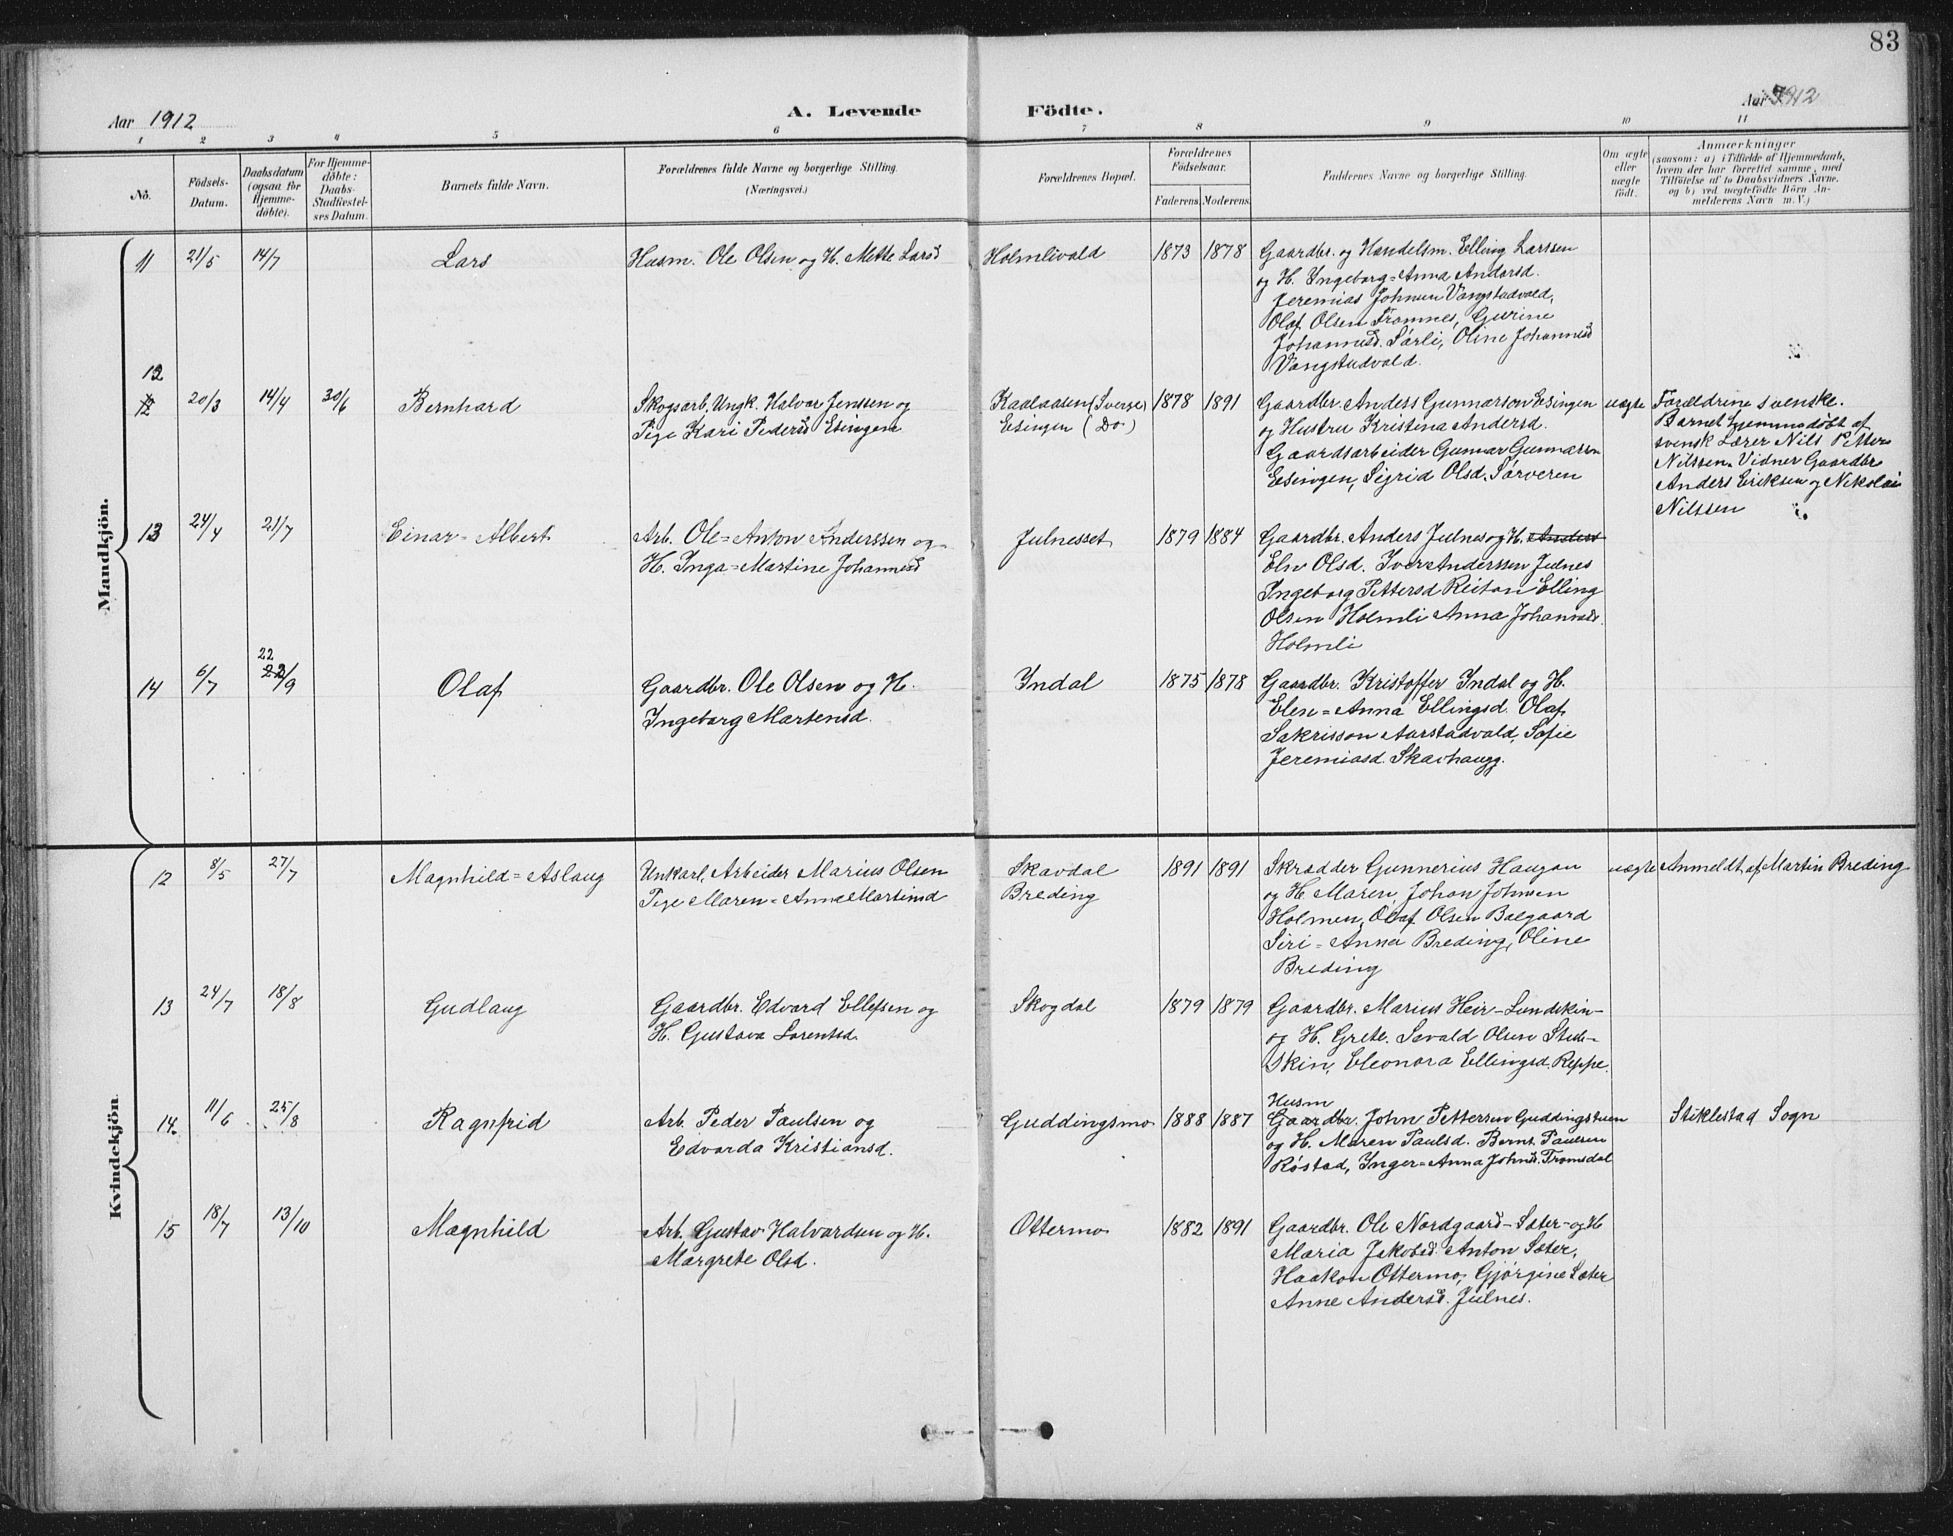 83
Aar 1912
A. Levende
Födte.
Aar 1912
1 2 3 4 5 6 7 8 9 10 11
No.
Födsels-
Datum.
Daabsdatum
(ogsaa for
Hjemme-
döbte).
For Hjemme-
døbte:
Daabs-
Stadfæstel-
ses Datum.
Barnets fulde Navn.
Forældrenes fulde Navne og borgerlige Stilling.
(Næringsvei.)
Forældrenes Bopæl.
Forældrenes
Födselsaar.
Faderens. Moderens.
Faddernes Navne og borgerlige Stilling.
Om ægte
eller
uægte
födt.
Anmærkninger
(saasom: a) i Tilfælde af Hjemmedaab,
hvem der har forrettet samme, med
Tilföielse af to Daabsvidners Navne.
og b) ved uegtefödte Börn An-
melderens Navn m. V.)
Mandkjön.
11 21/5 14/7 Lars
Husm. Ole Olsen og H. Mette Larsd
Holmlivald 1873 1878
Gaardbr. og Handelsm. Elling Larssen
og H. Ingeborg=Anna Andersd.
Jeremias Johnsen Vangstadvald,
Olaf Olsen Tromnes, Gurine
Johannesd. Sørli, Oline Johannesd
Vangstadvald.
12
12 20/3 14/4 30/6 Bernhard
Skogsarb, Ungk. Halvar Jenssen og
Pige Kari Pedersd Esingen
Kaalaasen (Sverge)
Esingen (Do)
1878 1891
Gaardbr. Anders Gunnarson Esingen
og Hustru Kristina Andersd.
Gaardsarbeider Gunnar Gunnarson
Esingen, Sigrid Olsd. Sørveren
uægte
Forældrene svenske.
Barnet hjemmedøbt af
svensk Lærer Nils Petter
Nilssen. Vidner Gaardbr
Anders Eriksen og Nikolai
Nilssen
13 24/4 21/7 Einar=Albert
Arb. Ole=Anton Anderssen og
H. Inga=Martine Johannesd
Julnesset 1879 1884
Gaardbr. Anders Julnes og H. Anders
Eln Olsd. Iver Anderssen Julnes
Ingeborg Pettersd Reitan Elling
Olsen Holmli Anna Johannesd.
Holmli
22
14 6/7 22/9 Olaf
Gaardbr. Ole Olsen og H.
Ingeborg Martensd.
Indal 1875 1878
Gaardbr. Kristoffer Indal og H.
Elen=Anna Ellingsd. Olaf
Sakrisson Aarstadvald, Sofie
Jeremiasd. Skavhaugg.
Kvindekjön
12 8/5 27/7 Magnhild=Aslaug
Unkarl, Arbeider Marius Olsen
Pige Maren=Anna Martinsd
Skavdal
Breding
1891 1891
Skrædder Gunnerius Haugan
og H. Maren, Johan Johnsen
Holmen, Olaf Olsen Balgaard
Siri=Anna Breding, Oline
Breding
uægte
Anmeldt af Martin Breding
13 24/7 18/8 Gudlaug
Gaardbr. Edvard Ellefsen og
H. Gustava Lorentsd.
Skogdal 1879 1879
Gaardbr. Marius Heir-Lundskin-
og H. Grete. Sevald Olsen Stids-
Skin, Eleonora Ellingsd. Reppe.
14. 11/6 25/8 Ragnfrid
Arb. Peder Paulsen og
Edvarda Kristiansd.
Guddingsmo 1888 1887
Husm
Gaardbr. John Petterssen Guddingstuen
og H. Maren Paulsd. Bernt Paulsen
Røstad, Inger=Anna Johnsd. Tromsdal
Stiklestad Sogn
15 18/7 13/10 Magnhild
Arb. Gustav Halvardsen og H.
Margrete Olsd.
Ottermo 1882 1891
Gaardbr. Ole Nordgaard-Sæter-og H
Maria Jakobsd. Anton Sæter,
Haakon Ottermo, Gjørgine Sæter
Anne Andersd. Julnes.